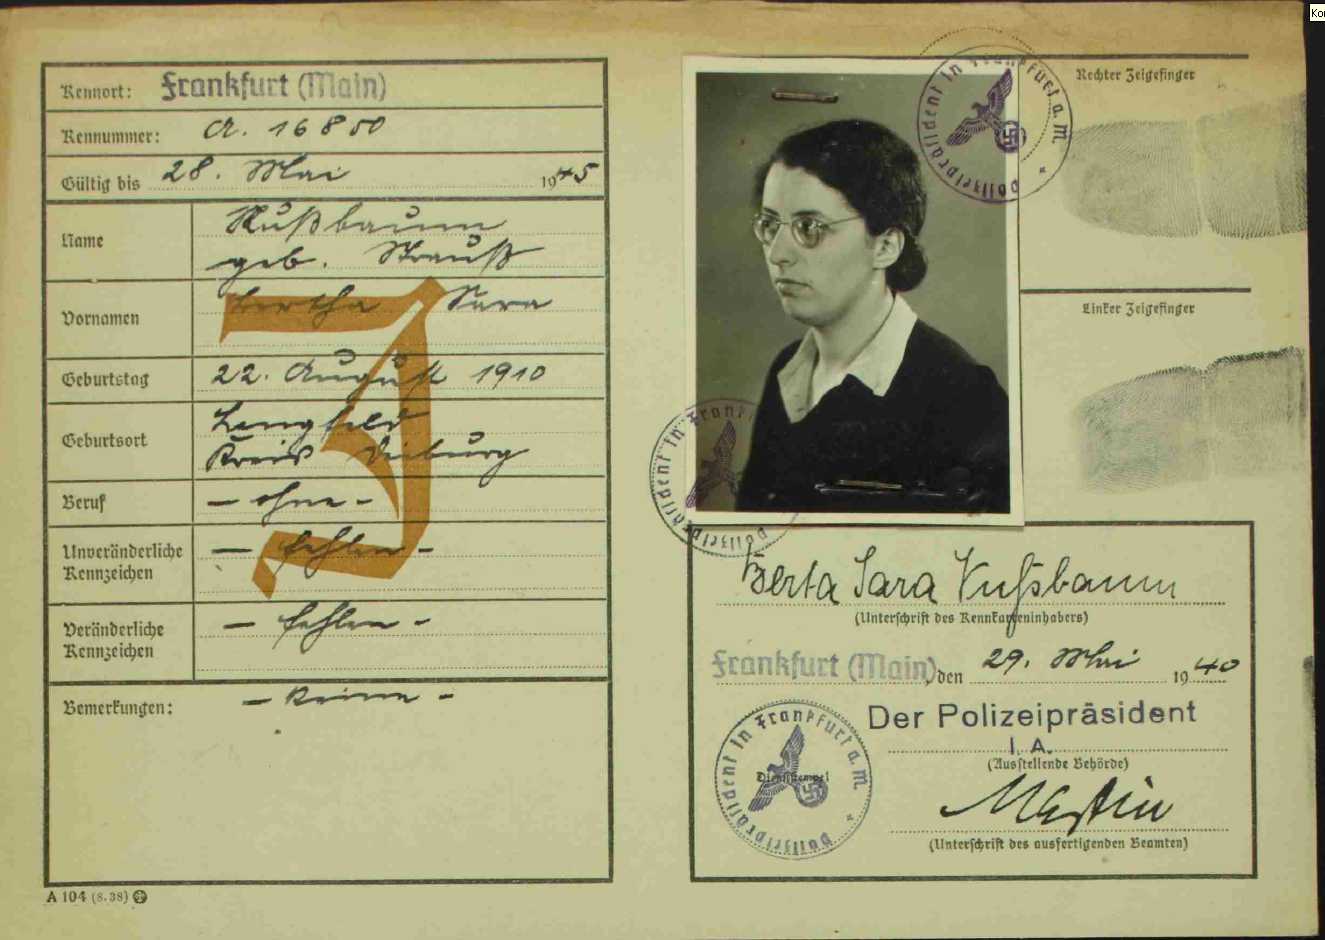 Kennort: Frankfurt (Main)
Kennummer: A. 16850
Gültig bis 28. Mai 1945
Name Nußbaum
geb. Strauß
Vornamen Bertha Sara
Geburtstag 22. August 1910
Geburtsort Lengfeld
Kreis Dieburg
Beruf - ohne -
Unveränderliche Kennzeichen - fehlen -
Veränderliche Kennzeichen - fehlen -
Bemerkungen: - keine -
A 104 (8.38)
J
Rechter Zeigefinger
Linker Zeigefinger
Polizeipräsident in Frankfurt a. M.
Polizeipräsident in Frankfurt a. M.
Berta Sara Nußbaum
(Unterschrift des Kennkarteninhabers)
Frankfurt (Main), den 29. Mai 1940
Der Polizeipräsident
I. A.
(Ausstellende Behörde)
Polizeipräsident in Frankfurt a. M.
Dienststempel
Martin
(Unterschrift des ausfertigenden Beamten)